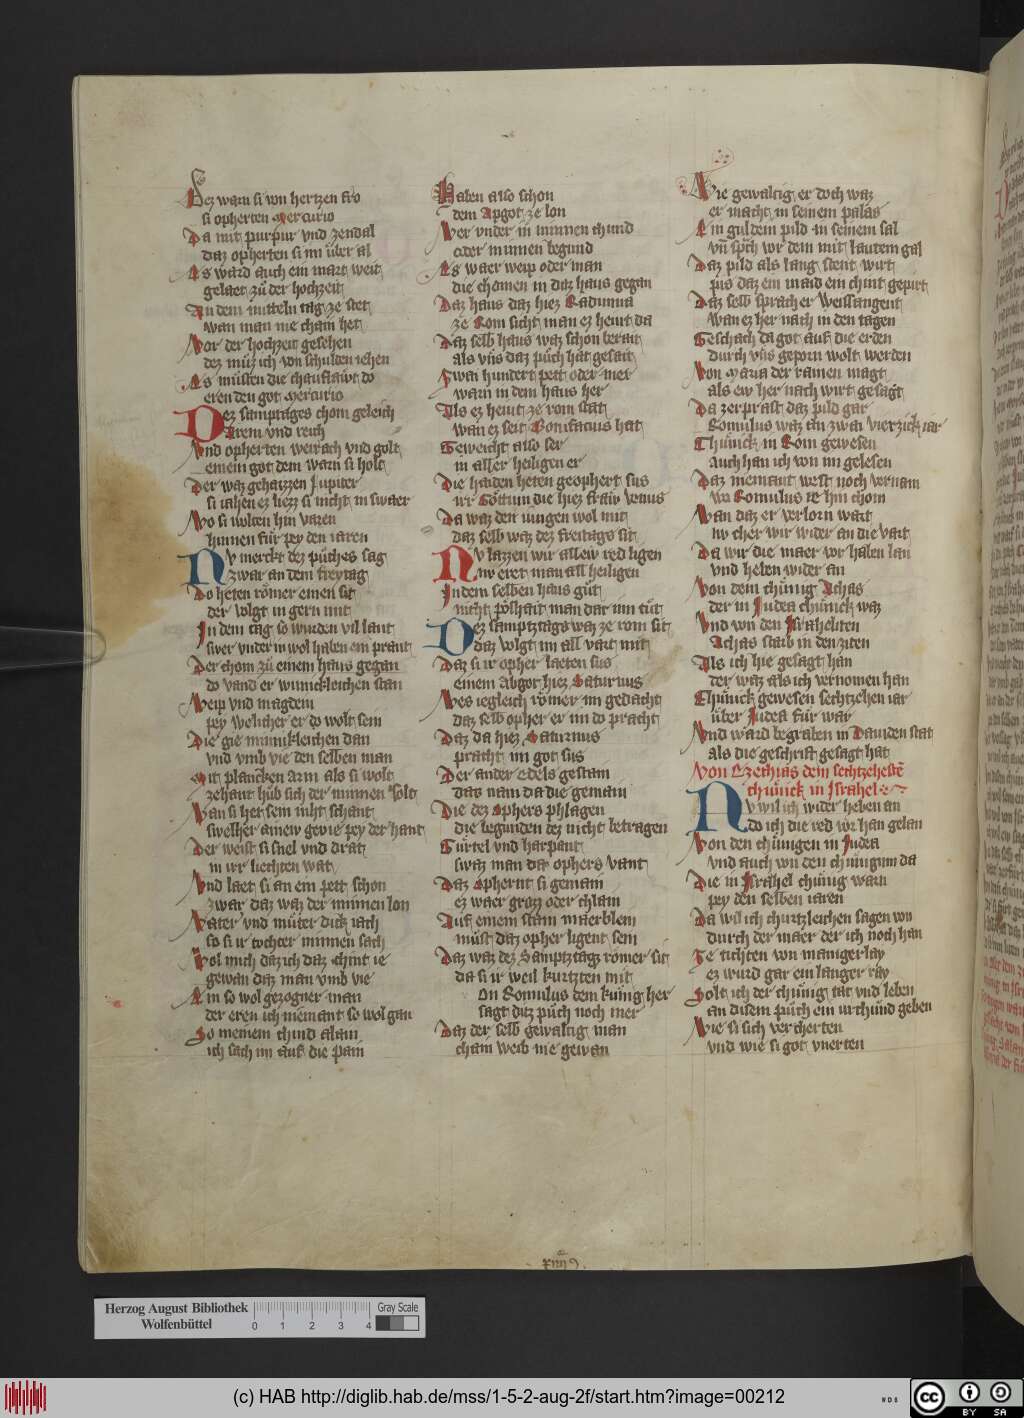 Dez warn si von hertzen fro
si opherten Mercurio
Da mit purpur vnd zendal
daz opherten si im über al
Es ward auch ein mart weit
gelaet zů der hochzeit
An dem mitteln tag ze stet
wan man nie cham het
Vor der hochzeit gesehen
dez můz ich von schulden iehen
Es můsten die chauflaẃt do
eren den got Mercurio
Dez samptages chom geleich
Arem vnd reich
Vnd opherten weirach vnd golt
einem got dem warn si holt
Der waz gehaizzen Jupiter
si iahen ez liezz si nicht in swaer
Wo si wolten hin varen
hinnen für pey den iaren
Nv merckt dez půches sag
zwar an dem freytag
Do heten römer einen sit
der volgt in gern mit
In dem tag so wurden vil laut
swer vnder in wol haben ein praut
Der chom zů einem haus gegan
do vand er wunickleichen stan
Weip vnd magdein
pey welicher er do wolt sein
Die gie minnikleichen dan
vnd vmb vie den selben man
Mit plancken arm als si wolt
zehant hůb sich der minnen solt
Wan si het sein niht schant
swelher ainew gevie pey der hant
Der weist si snel vnd drat
in irr liechten wat
Vnd laet si an ein pett schon
zwar daz waz der minnen lon
Vater vnd můter dick iach
so si ir tochter minnen sach
Wol mich daz ich daz chint ie
gewan daz man vmb vie
Ein so wol gezogner man
der eren ich niemant so wol gan
So meinem chind alain
ich sach im auf die pain
Haben also schon
dem Apgot ze lon
Wer vnder in minnen chund
oder minnen begund
Es waer weip oder man
die chomen in daz haus gegan
Daz haus daz hiez Radunna
ze Rom sicht man ez heut da
Daz selb haus waz schon berait
als vns daz půch hat gesait
Zwai hundert pett oder mer
warn in dem haus her
Als ez heut ze rom stat
wan ez seit Bonifacius hat
Geweicht also ser
in aller heiligen er
Die haiden heten geophert sus
irr Göttinn die hiez fraw venus
Da waz den iungen wol mit
daz selb waz dez freitags sit
Nv lazzen wir allew red ligen
nv eret man all heiligen
In dem selben haus gůt
nicht poshait man dar inn tůt
Dez samptztags waz ze rom sit
daz volgt im all vart mit
Daz si ir opher laeten sus
einem Abgot hiez Saturnus
Wes iegleich römer im gedacht
daz selb opher er im do pracht
Daz da hiez Saturnus
pracht im got sus
Der ander edels gestain
daz nam da die gemain
Die dez Ophers phlagen
die begunden dez nicht betragen
Gürtel vnd harpant
swaz man da ophers vant
Daz Ophernt si gemain
ez waer grozz oder chlain
Auf einem stain maerblein
můst daz opher ligent sein
Daz waz dez Samptztags römer sit
da si ir weil kurtzten mit
On Romulus dem kunig her
sagt ditz půch noch mer
Daz der selb gewaltig man
cham weib nie gewan
Wie gewaltig er doch waz
er macht in seinem palas
Ein guldein pild in seinem sal
vn̄ sprch vor dem mit lautem gal
Daz pild als lang stent wirt
pis daz ein maid ein chint gepirt
Daz selb sprach er weissagent
wan ez her nach in den tagen
Geschach da got auf die erden
durch vns geporn wolt werden
Von Maria der rainen magt
als ew her nach wirt gesagt
Da zerprast daz pild gar
Romulus waz an zwai vierzick iar
Chünick in Rom gewesen
auch han ich von im gelesen
Daz niemant west noch vernam
wo Romulus ie hin chom
Wan daz er verlorn wart
nv cher wir wider an die vart
Da wir die maer vor haben lan
vnd heben wider an
Von dem chünig Achas
der in Judea chünick waz
Vnd von den Israheliten
Achas starb in den ziten
Als ich hie gesagt han
der waz als ich vernomen han
Chünick gewesen sechtzehen iar
über Judea für war
Vnd ward begraben in Dauiden stat
als die geschrift gesagt hat
Von Ezechias dem sechtzehestē
chünick in Israhel
Nv wil ich wider heben an
do ich die red vor han gelan
Von den chünigen in Judea
vnd auch von den chünigin da
Die in Israhel chünig warn
pey den selben iaren
Da wil ich churtzleichen sagen von
durch der maer der ich noch han
Ze tichten von maniger lay
ez wurd gar ein langer ray
Solt ich der chünig tat vnd leben
an disem půch ein urchünd geben
Wie si sich vercherten
vnd wie si got vnerten
Herzog August Bibliothek
Wolfenbüttel
0 1 2 3 4
Gray Scale
(c) HAB http://diglib.hab.de/mss/1-5-2-aug-2f/start.htm?image=00212
WDB
cc BY SA